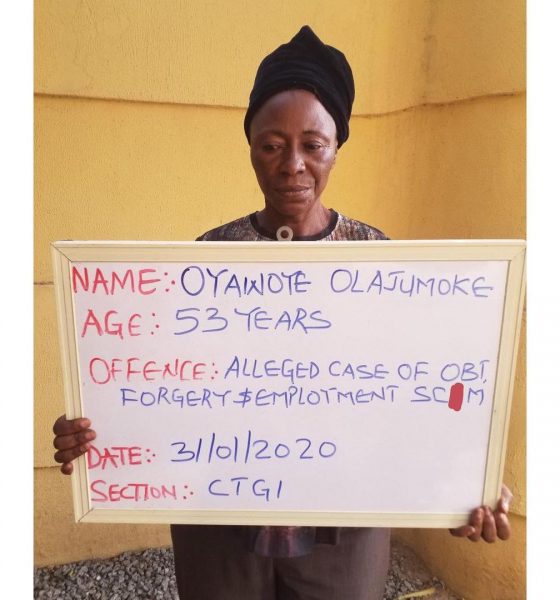 NAME:- OYAWOYE OLAJUMOKE
AGE:- 53 YEARS
OFFENCE:- ALLEGED CASE OF OBT,
FORGERY $ EMPLOTMENT SC M
DATE:- 31/01/2020
SECTION:- CTGI